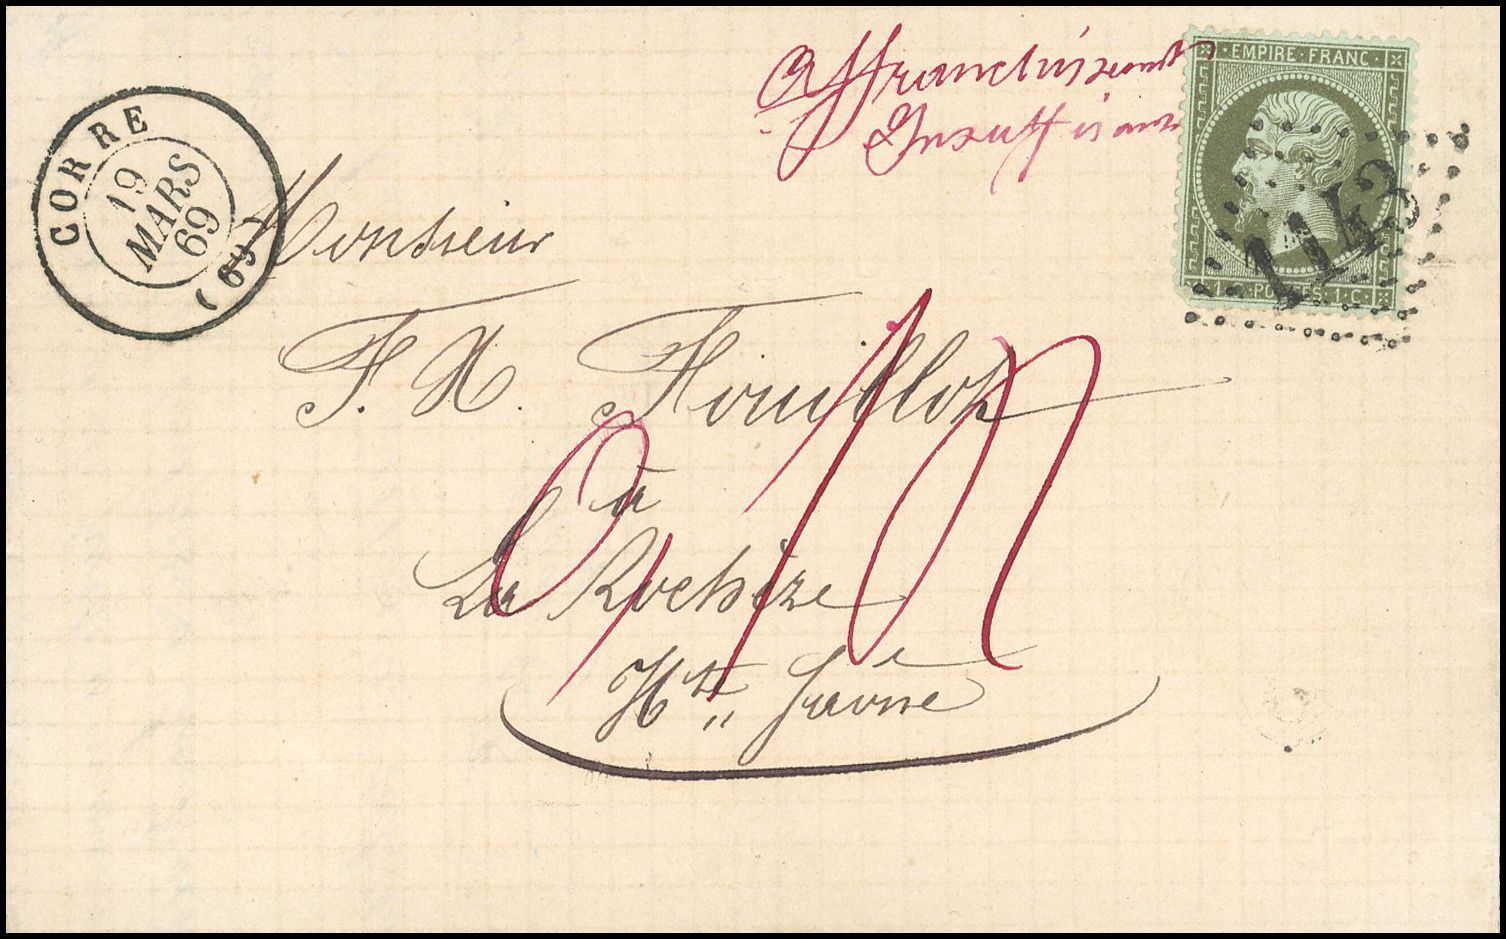 Affranchissement
Insuffisant
EMPIRE FRANC
1 C. POSTES 1 C.
1143
CORRE
19
MARS
69
(69)
Monsieur
F. X. Fouillot
à
La Rochère
Hte Saône